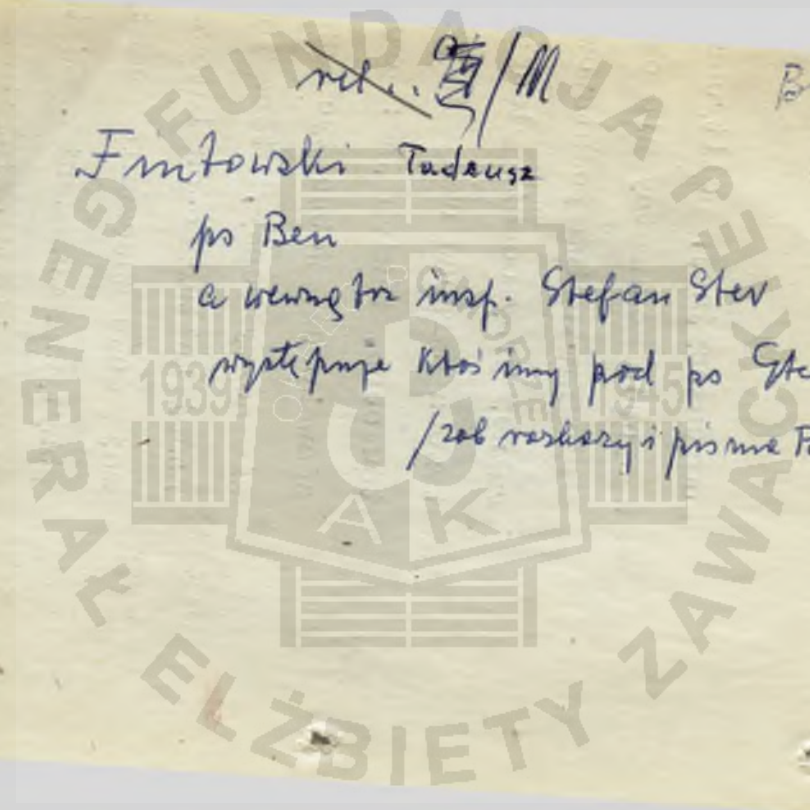 /M
Tadeusz
po Ben
a wewnątrz insp. Stefan Stev
występuje ktoś inny pod ps
/zob rozkazy i pisma
FUNDACJA GENERAŁ ELŻBIETY ZAWACKIEJ
1939 1945
AK